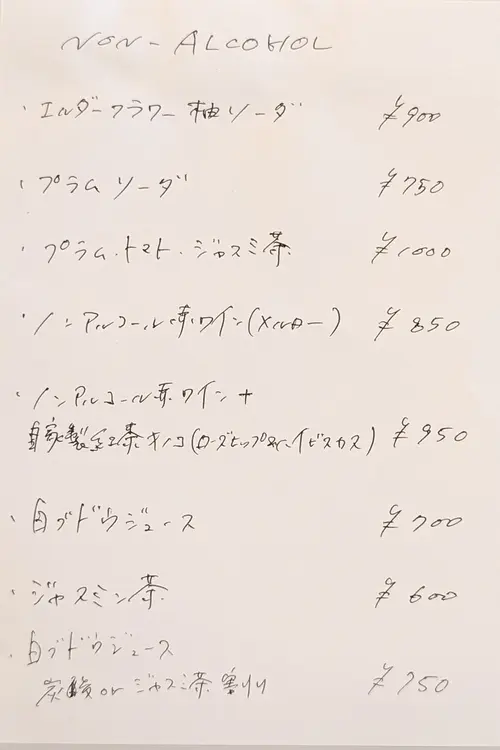 NON-ALCOHOL
・エルダーフラワー 柚ソーダ ¥900
・プラムソーダ ¥750
・プラム・トマト・ジャスミン茶 ¥1000
・ノンアルコール赤ワイン(メルロー) ¥850
・ノンアルコール赤ワイン+
自家製紅茶キノコ(ローズヒップ&ハイビスカス) ¥950
・白ブドウジュース ¥700
・ジャスミン茶 ¥600
・白ブドウジュース
炭酸orジャスミン茶割り ¥750